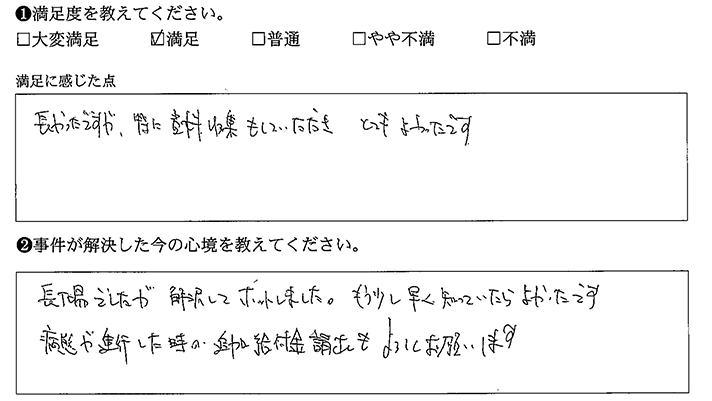 ❶満足度を教えてください。
□大変満足 ☑満足 □普通 □やや不満 □不満
満足に感じた点
長かったですが、特に資料収集もしていただき とても よかったです
❷事件が解決した今の心境を教えてください。
長丁場でしたが 解決して ホットしました。もう少し早く知っていたらよかったです
病態が進行した時の 追加給付金 請求も よろしくお願いします